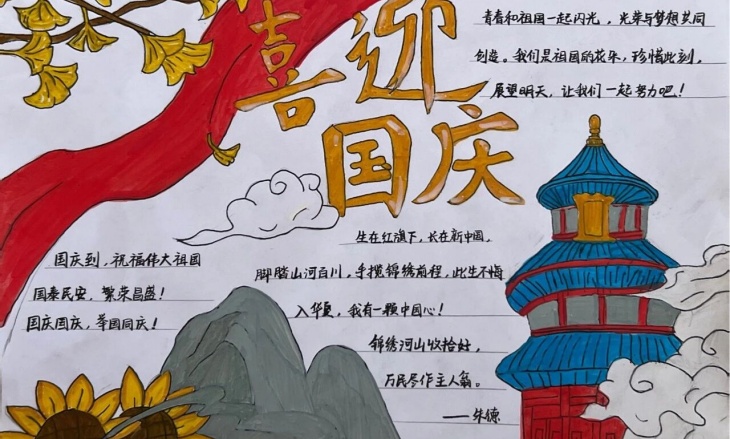 喜迎
国庆
青春和祖国一起闪光，光荣与梦想共同
创造。我们是祖国的花朵，珍惜此刻，
展望明天，让我们一起努力吧！
国庆到，祝福伟大祖国
国泰民安，繁荣昌盛！
国庆国庆，举国同庆！
生在红旗下，长在新中国，
脚踏山河百川，手揽锦绣前程，此生不悔
入华夏，我有一颗中国心！
锦绣河山收拾好，
万民尽作主人翁。
——朱德